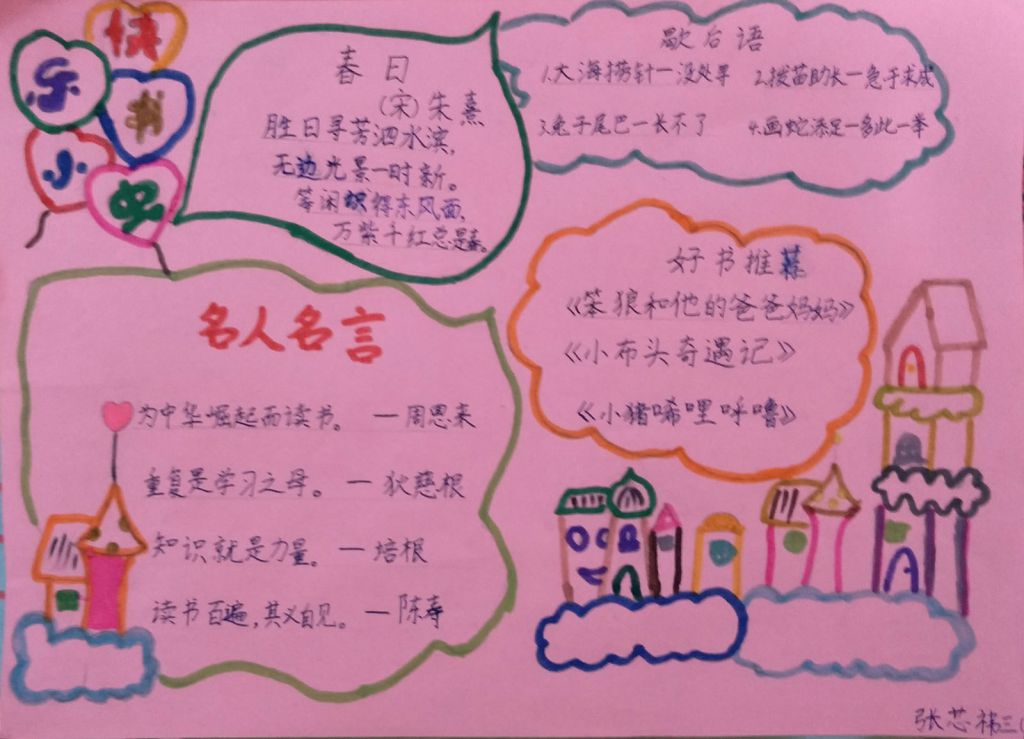 快
乐
书
小
屋
春日
(宋)朱熹
胜日寻芳泗水滨,
无边光景一时新。
等闲识得东风面,
万紫千红总是春。
歇后语
1.大海捞针一没处寻 2.拔苗助长一急于求成
3.兔子尾巴一长不了 4.画蛇添足一多此一举
好书推荐
《笨狼和他的爸爸妈妈》
《小布头奇遇记》
《小猪唏哩呼噜》
名人名言
为中华崛起而读书。 一周恩来
重复是学习之母。 一狄慈根
知识就是力量。 一培根
读书百遍,其义自见。 一陈寿
张芯祎三(